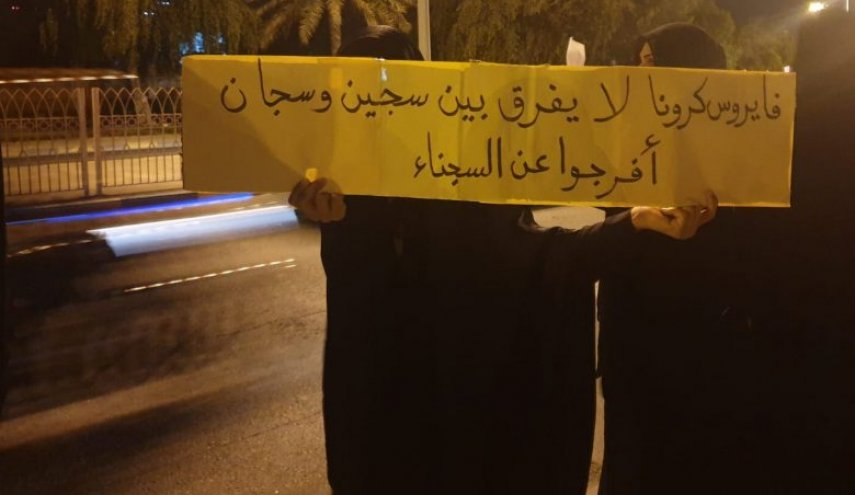 فايروس كرونا لا يفرق بين سجين وسجان
أفرجوا عن السجناء